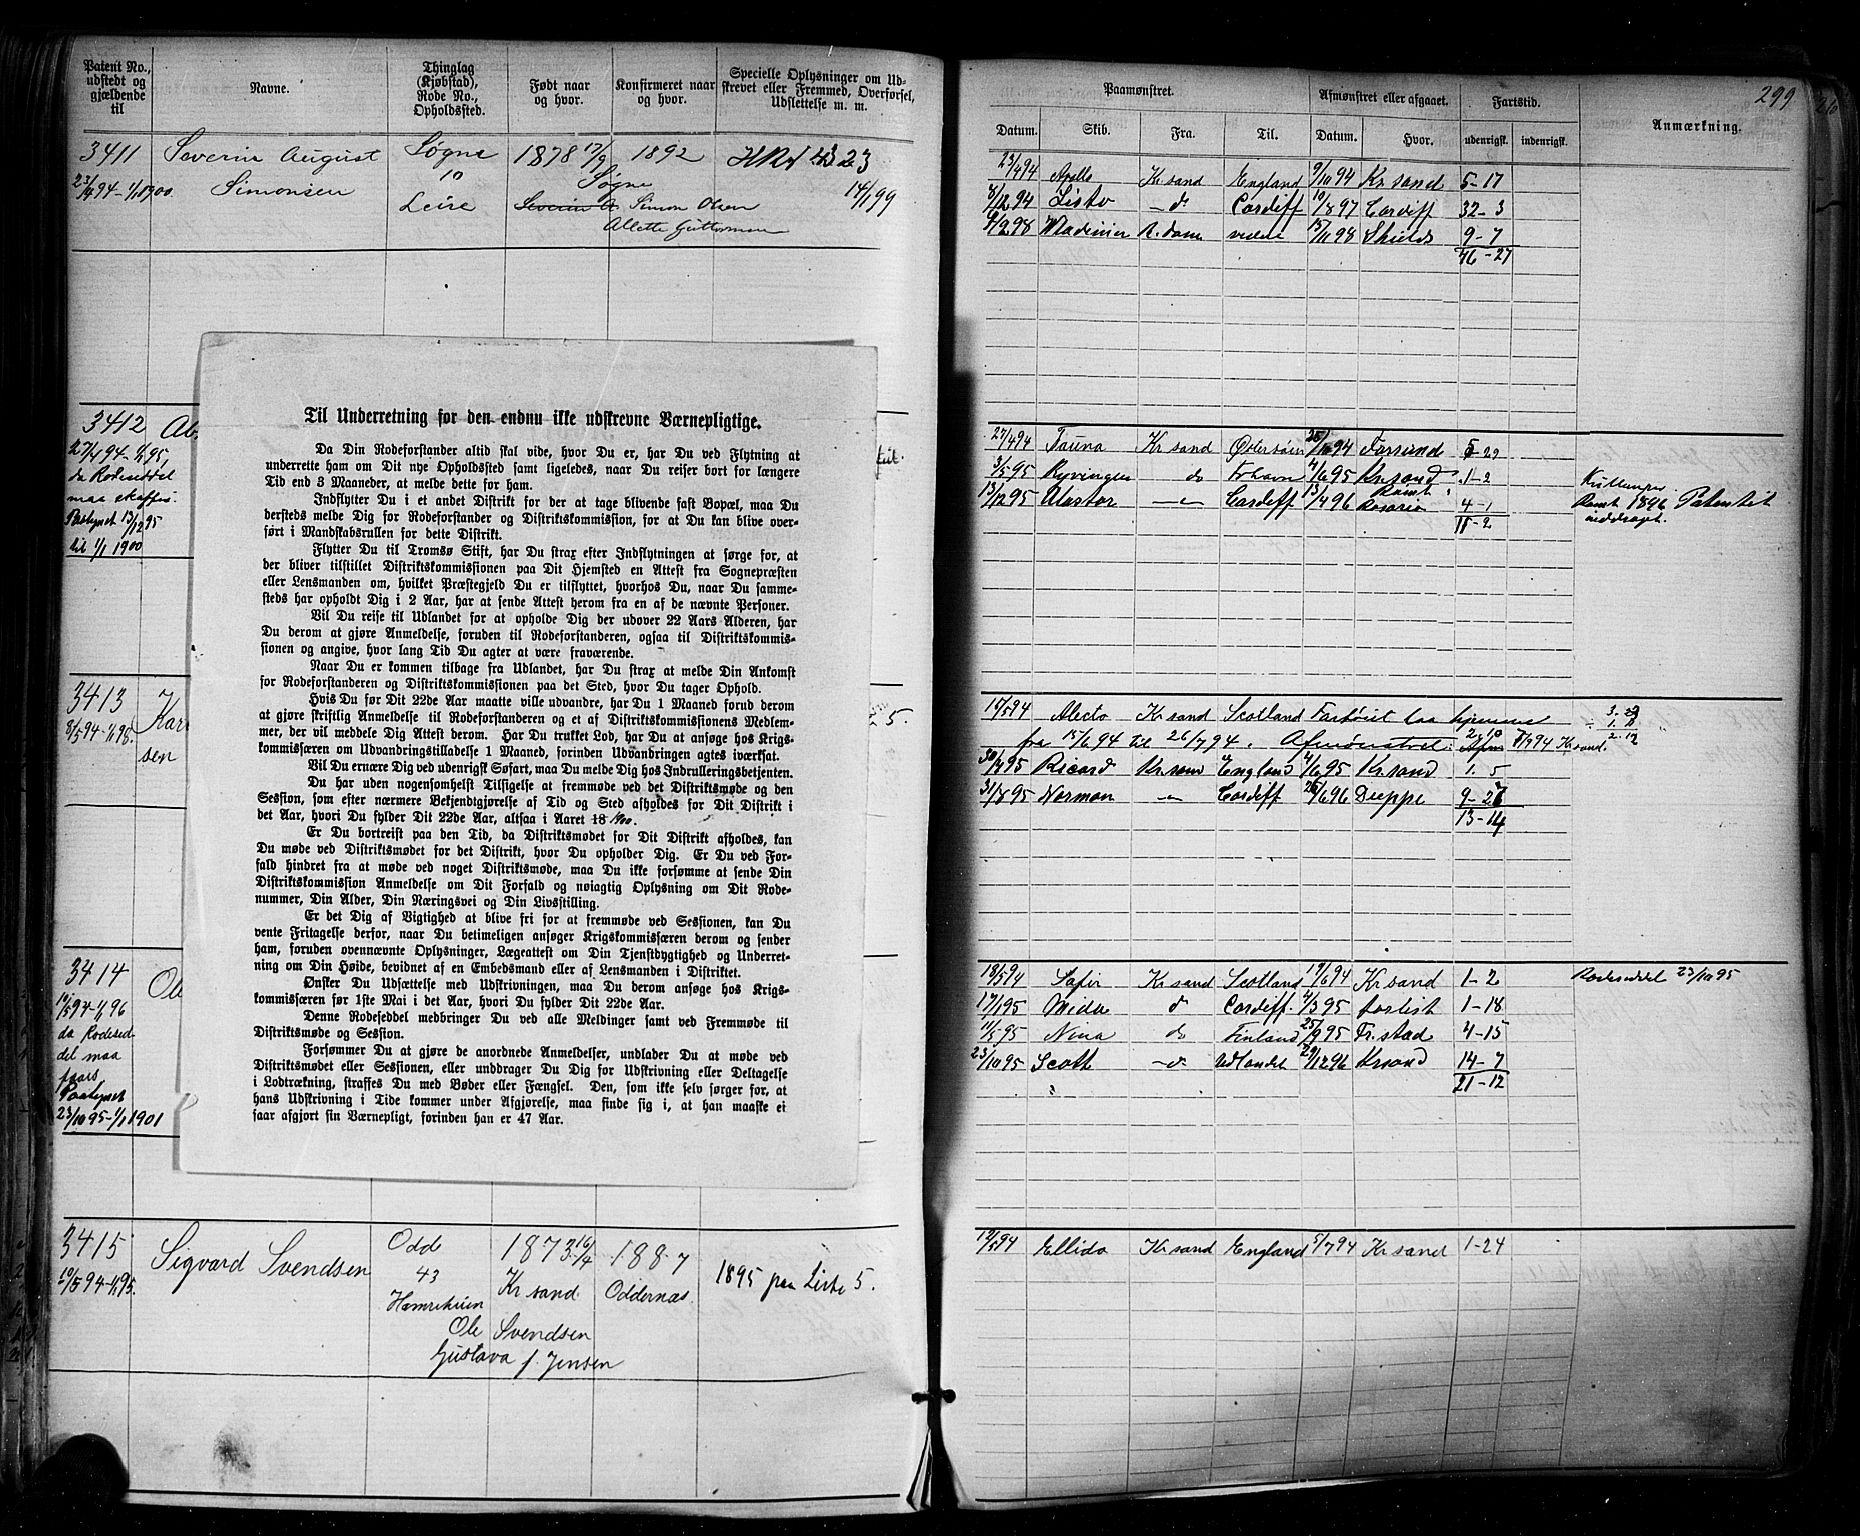 Patent No., udstedt og gjældende til
Navne.
Thinglag (Kjøbstad), Rode No., Opholdssted.
Født naar og hvor.
Konfirmeret naar og hvor.
Specielle Oplysninger om Udskrevet eller Fremmed, Overførsel, Udslettelse m. m.
3411 Severin August Søgne 1878 17/9 1892
23/4 94 - 1/1 1900 Simonsen 10 Søgne 14/1 99
Simon Olsen
3412
27/4 94 - 1/1 95,
da Rodeseddel
maa skaffes.
13/12 95
til 1/1 1900
3413
8/5 94 - 1/1 95.
sen
5.
3414 Ole
19/5 94 - 1/1 96
da Rodesed
del maa
23/10 95 - 1/1 1901
Til Underretning for den endnu ikke udskrevne Værnepligtige.
Da Din Rodeforstander altid skal vide, hvor Du er, har Du ved Flytning at
underrette ham om Dit nye Opholdssted samt ligeledes, naar Du reiser bort for længere
Tid end 3 Maaneder, at melde dette for ham.
Indflytter Du i et andet Distrikt for der at tage blivende fast Bopæl, maa Du
dersteds melde Dig for Rodeforstander og Distriktskommission, for at Du kan blive over-
ført i Mandskabsrullen for dette Distrikt.
Flytter Du til Tromsø Stift, har Du strax efter Indflytningen at sørge for, at
der bliver tilstillet Distriktskommissionen paa Dit Hjemsted en Attest fra Sognepræsten
eller Lensmanden om, hvilket Præstegjeld Du er tilflyttet, hvorhos Du, naar Du samme-
steds har opholdt Dig i 2 Aar, har at sende Attest herom fra en af de nævnte Personer.
Vil Du reise til Udlandet for at opholde Dig der udover 22 Aars Alderen, har
Du derom at gjøre Anmeldelse, foruden til Rodeforstanderen, ogsaa til Distriktskommis-
sionen og angive, hvor lang Tid Du agter at være fraværende.
Naar Du er kommen tilbage fra Udlandet, har Du strax at melde Din Ankomst
for Rodeforstanderen og Distriktskommissionen paa det Sted, hvor Du tager Ophold.
Hvis Du før Dit 22de Aar maatte ville udvandre, har Du 1 Maaned forud derom
at gjøre skriftlig Anmeldelse til Rodeforstanderen og et af Distriktskommissionens Medlem-
mer, der vil meddele Dig Attest derom. Har Du trukket Lod, har Du at ansøge hos Krigs-
kommissæren om Udvandringstilladelse 1 Maaned, forinden Udvandringen agtes iværksat.
Vil Du ernære Dig ved udenrigsk Søfart, maa Du melde Dig hos Indrulleringsbetjenten.
Du har uden nogensomhelst Tilsigelse at fremmøde ved det Distriktsmøde og den
Session, som efter nærmere Bekjendtgjørelse af Tid og Sted afholdes for Dit Distrikt i
det Aar, hvori Du fylder Dit 22de Aar, altsaa i Aaret 18 1900.
Er Du bortreist paa den Tid, da Distriktsmødet for Dit Distrikt afholdes, kan
Du møde ved Distriktsmødet for det Distrikt, hvor Du opholder Dig. Er Du ved For-
fald hindret fra at møde ved noget Distriktsmøde, maa Du ikke forsømme at sende Din
Distriktskommission Anmeldelse om Dit Forfald og nøiagtig Oplysning om Dit Rode-
nummer, Din Alder, Din Næringsvei og Din Livsstilling.
Er det Dig af Vigtighed at blive fri for at fremmøde ved Sessionen, kan Du
vente Fritagelse derfor, naar Du betimeligen ansøger Krigskommissæren derom og sender
ham, foruden ovennævnte Oplysninger, Lægeattest om Din Tjenstdygtighed og Underret-
ning om Din Høide, bevidnet af en Embedsmand eller af Lensmanden i Distriktet.
Ønsker Du Udsættelse med Udskrivningen, maa Du derom ansøge hos Krigs-
kommissæren før 1ste Mai i det Aar, hvori Du fylder Dit 22de Aar.
Denne Rodeseddel medbringer Du ved alle Meldinger samt ved Fremmøde til
Distriktsmøde og Session.
Forsømmer Du at gjøre de anordnede Anmeldelser, undlader Du at møde ved
Distriktsmødet eller Sessionen, eller unddrager Du Dig for Udskrivning eller Deltagelse
i Lodtrækning, straffes Du med Bøder eller Fængsel. Den, som ikke selv sørger for, at
hans Udskrivning i Tide kommer under Afgjørelse, maa finde sig i, at han maaske ei
faar afgjort sin Værnepligt, forinden han er 47 Aar.
3415 Sigvard Svendsen Odd 1873 16/4 1887
19/5 94 - 1/1 95. 43 Kr sand Oddernæs. 1895 paa Liste 5.
Ole Svendsen
Gustava f. Jensen
299
Paamønstret. Afmønstret eller afgaaet. Fartstid.
Datum. Skib. Fra. Til. Datum. Hvor. udenrigsk. indenrigsk. Anmærkning.
23/4 94 Apollo Kr sand England 9/10 94 Kr sand 5-17
8/12 94 Lister - d Cardiff 10/8 97 Cardiff 32-3
9/2 98 Wladimir A. dam 15/11 98 Shields 9-7
46-27
27/4 94 Fauna Kr sand Østersøen 94 Farsund 29
3/5 95 Ryvingen do Fr havn 4/6 95 Kr sand 1-2
13/12 95 Alastor Cardiff 13/4 96 Rosario 4-1 Rømt 1896 Patentet
inddraget.
11-2
15/5 94 Alecto Kr sand Scotland Fartøiet laa hjemme
fra 15/6 94 til 26/7 94. Afmønstret 94 Kr sand.
30/4 95 Ricard Kr. sand England 4/6 95 Kr. sand 1. 5
31/8 95 Norman Cardiff 26/6 96 Dieppe
13-14
18/5 94 Safir Kr sand Scotland 19/6 94 Kr sand 1-2 Rodeseddel 23/10 95
17/1 95 d Cardiff. 4/3 95 1-18
11/5 95 Nina do Finland 25/9 95 Fr. stad 4-15
23/10 95 Scott - d Udlandet 29/12 96 Kr sand 14-7
21-12
19/5 94 Ellida Kr sand England 5/7 94 Kr sand 1-24